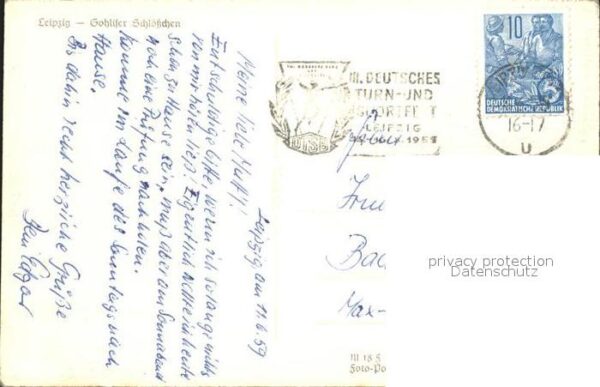 Leipzig — Gohliser Schlößchen
Leipzig am 11.6.59
Meine liebe Mutti!
Entschuldige bitte, wenn ich so lange nichts
von mir hören ließ! Eigentlich wollte ich heute
schon zu Hause sein, muß aber am Sonnabend
noch eine Prüfung nachholen.
Komme im Laufe des Sonntags nach
Hause.
Bis dahin recht herzliche Grüße
Dein
III. DEUTSCHES
TURN- UND
SPORTFEST
LEIPZIG
1959
DTSB
10
DEUTSCHE
DEMOKRATISCHE REPUBLIK
16-17
U
Frau
Bad
Max-
privacy protection
Datenschutz
III 18 5
Foto-Po